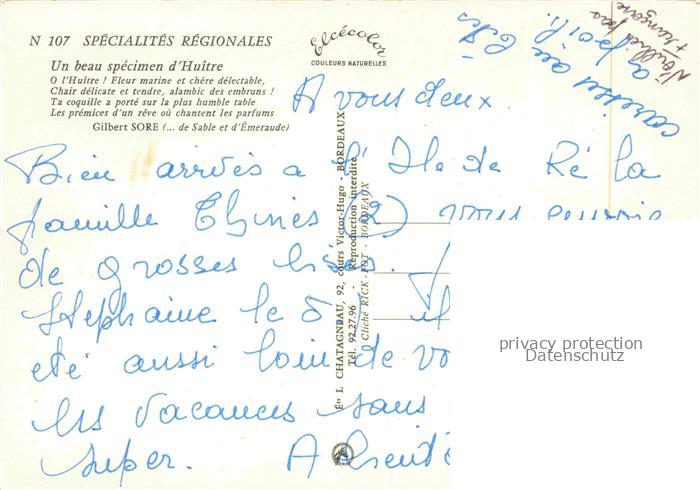 N 107 SPÉCIALITÉS RÉGIONALES
Un beau spécimen d'Huître
O l'Huître ! Fleur marine et chère délectable,
Chair délicate et tendre, alambic des embruns !
Ta coquille a porté sur la plus humble table
Les prémices d'un rêve où chantent les parfums
Gilbert SORE (... de Sable et d'Émeraude)
Elcécolor
COULEURS NATURELLES
A vous deux.
Bien arrivés a l'Ile de Ré la
famille
vous envoie
de grosses bises.
Stephanie le 5
été aussi loin de vo
les vacances sans
super. A bientô
Ets L CHATAGNEAU, 92, cours Victor-Hugo - BORDEAUX
Tél. 92.27.96 - Reproduction interdite
Cliché RICK-FOT - BORDEAUX
caresses au
N'oublie pas
privacy protection
Datenschutz